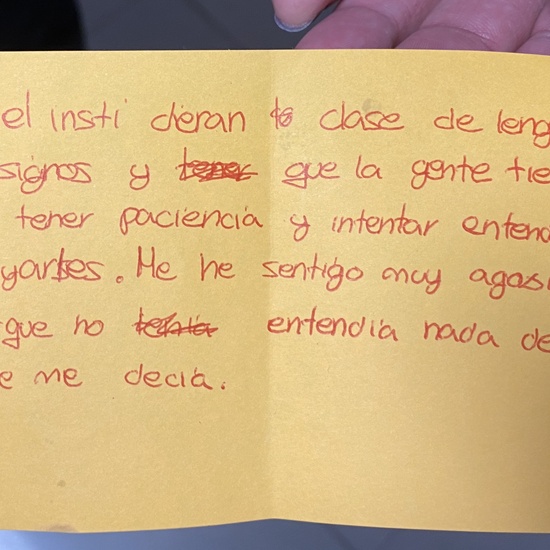 el insti dieran clase de leng
signos y que la gente tie
tener paciencia y intentar entend
yarles. Me he sentigo muy agasi
que no entendia nada de
e me decia.